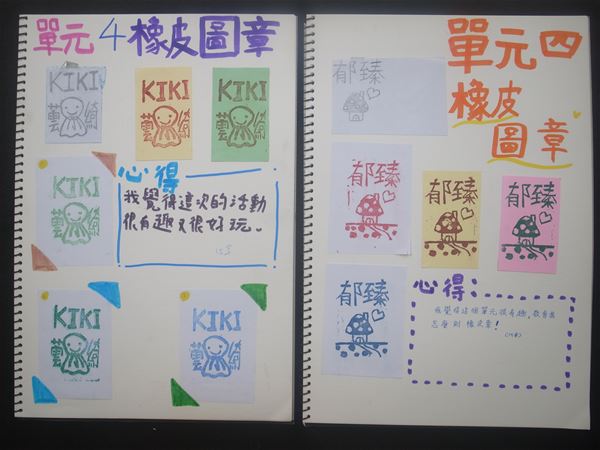 單元4橡皮圖章
KIKI
藝綺
KIKI
藝綺
KIKI
藝綺
KIKI
藝綺
心得
我覺得這次的活動
很有趣又很好玩。
KIKI
藝綺
KIKI
藝綺
單元四
橡皮
圖章
郁臻
郁臻
郁臻
郁臻
郁臻
心得:
我覺得這個單元很有趣,教會我
怎麼刻橡皮章!